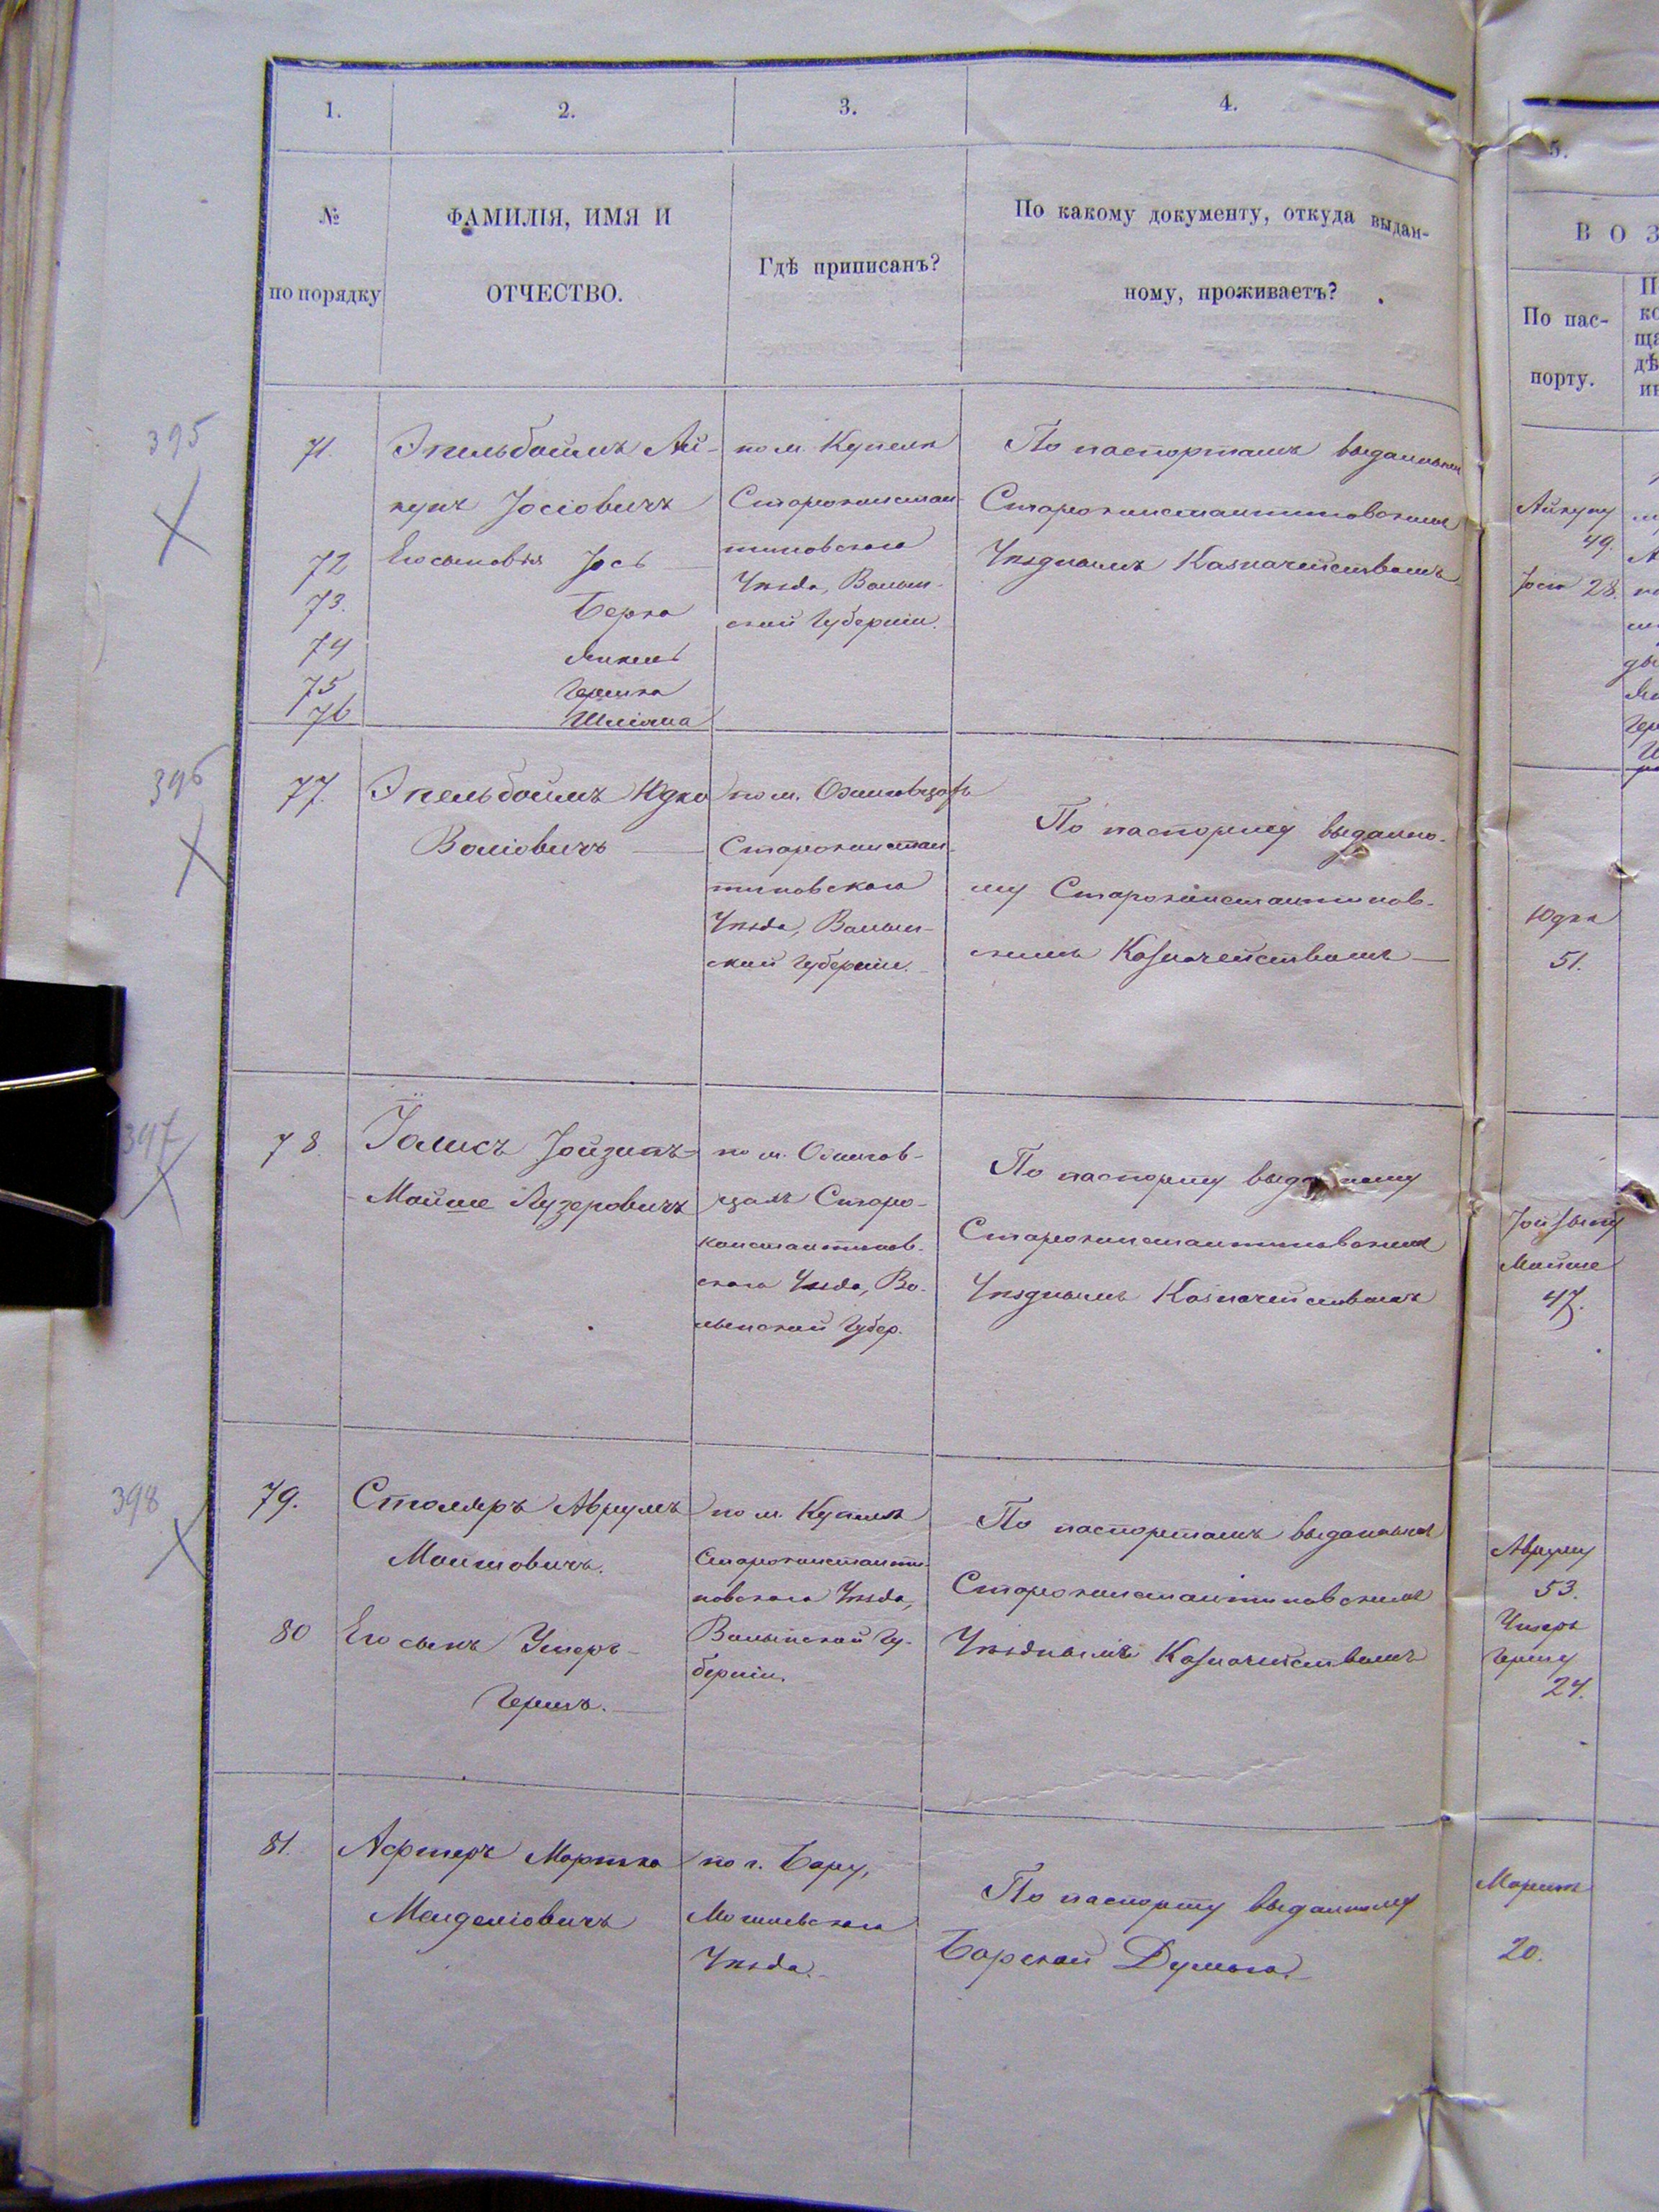 1.
2.
3.
4.
5.
№
по порядку
ФАМИЛІЯ, ИМЯ И
ОТЧЕСТВО.
Гдѣ приписанъ?
По какому документу, откуда выдан-
ному, проживаетъ?
В О З
По пас-
порту.
395
71.
Эпельбаймъ Ай-
купъ Іосіовичъ
72
Его сыновья Іось
73.
Берко
74
Янкель
75
Гершко
76
Шліома
по м. Купеля
Староконстан-
тиновскаго
Уѣзда, Волын-
ской Губерніи.
По паспортамъ выданнымъ
Староконстантиновскимъ
Уѣзднымъ Казначействомъ
Айкупу
49.
28.
396
77.
Эпельбоймъ Юдко
Воліовичъ
по м.
Староконстан-
тиновскаго
Уѣзда, Волын-
ской Губерніи.
По паспорту выданно-
му Староконстантинов-
скимъ Казначействомъ
Юдки
51.
397
78.
Мойше Лузеровичъ
по м.
цамъ Старо-
константинов-
скаго Уѣзда, Во-
лынской Губер.
По паспорту выданному
Староконстантиновскимъ
Уѣзднымъ Казначействомъ
Мойше
47.
398
79.
Столяръ Аврумъ
Мошковичъ.
80
Его сынъ Ушеръ-
Гершъ.
по м. Купеля
Староконстанти-
новскаго Уѣзда,
Волынской Гу-
берніи.
По паспортамъ выданнымъ
Староконстантиновскимъ
Уѣзднымъ Казначействомъ
Авруму
53.
Ушеръ
Гершу
24.
81.
Афтеръ Мортко
Менделіовичъ
по г. Бару,
Могилевскаго
Уѣзда.
По паспорту выданному
Барской Думою.
20.